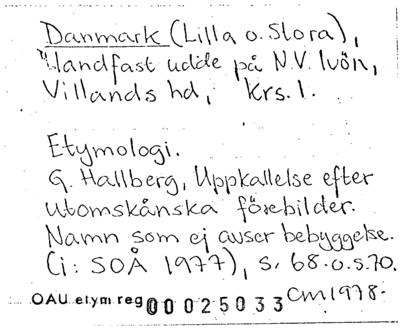 Danmark (Lilla o. Stora),
"landfast udde på N.V. Ivön,
Villands hd, Krs. l.
Etymologi.
G. Hallberg, Uppkallelse efter
utomskånska förebilder.
Namn som ej avser bebyggelse.
(i: SOÅ 1977), s. 68 o. s. 70.
OAU etym reg 00025033 CM 1978.